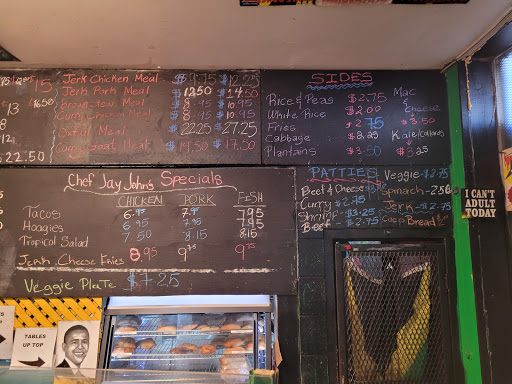 15
Jerk Chicken Meal $9.75 $12.25
16.50
Jerk Pork Meal $12.50 $14.50
13
Brown Stew Meal $8.95 $10.95
Curry Chicken Meal $8.95 $10.95
Oxtail Meal $22.25 $27.25
22.50
Curry Goat Meal $14.50 $17.50
SIDES
Rice & Peas $2.75
White Rice $2.00
Fries $2.75
Cabbage $2.25
Plantains $3.50
Mac
&
Cheese
$3.50
Kale/Callaloo
$3.25
Chef Jay Johns Specials
CHICKEN PORK FISH
Tacos 6.95 7.95 7.95
Hoagies 6.95 7.95 9.95
Tropical Salad 7.50 8.15 8.15
Jerk Cheese Fries 8.95 9.75 9.75
Veggie Plate $7.25
PATTIES
Beef & Cheese
Curry $2.75
Shrimp $3.25
Beef $2.75
Veggie $2.75
Spinach
Jerk $2.75
Coco Bread
I CAN'T
ADULT
TODAY
TABLES
UP TOP